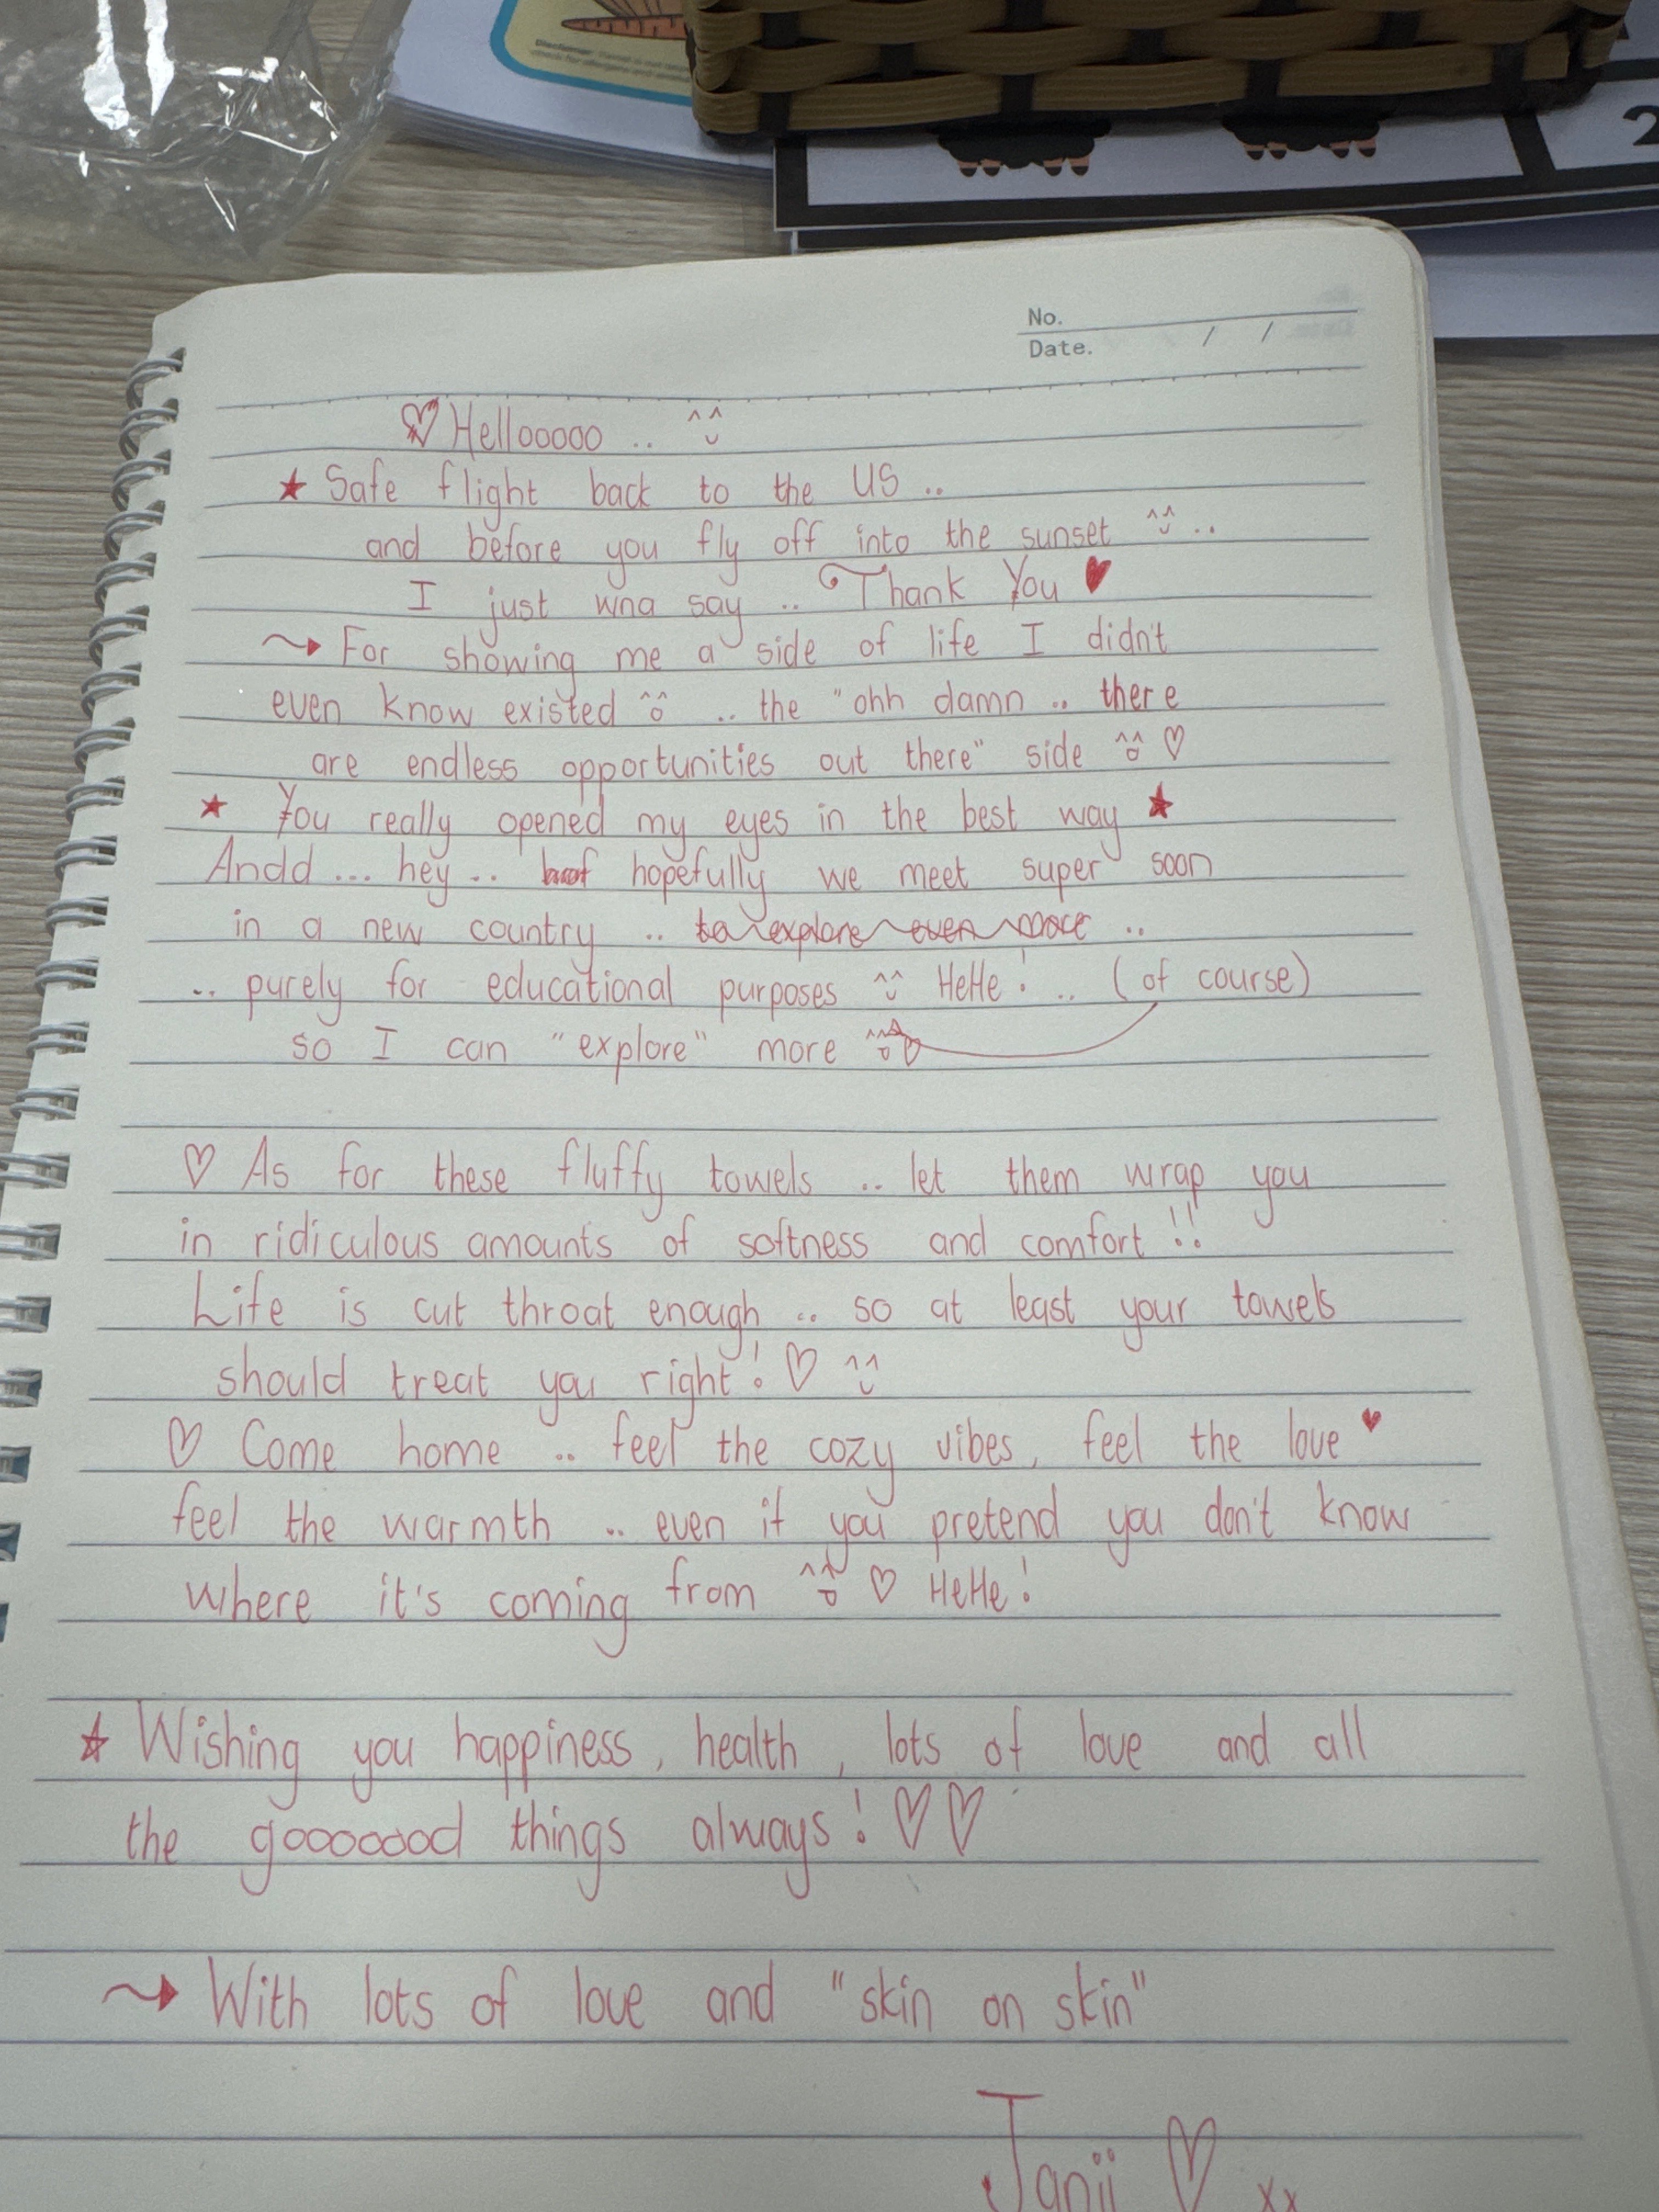 No.
Date. / /
♡ Hellooooo .. ^^
★ Safe flight back to the US ..
and before you fly off into the sunset ^^ ..
I just wna say .. Thank You ♥
→ For showing me a side of life I didn't
even know existed ^^ .. the "ohh damn .. there
are endless opportunities out there" side ^^ ♡
★ You really opened my eyes in the best way ★
Andd ... hey .. hopefully we meet super soon
in a new country .. to explore even more ..
.. purely for educational purposes ^^ HeHe! .. (of course)
so I can "explore" more ^^ ♡
♡ As for these fluffy towels .. let them wrap you
in ridiculous amounts of softness and comfort !!
Life is cut throat enough .. so at least your towels
should treat you right! ♡ ^^
♡ Come home .. feel the cozy vibes, feel the love ♥
feel the warmth .. even if you pretend you don't know
where it's coming from ^^ ♡ HeHe!
★ Wishing you happiness, health, lots of love and all
the gooooood things always! ♡♡
→ With lots of love and "skin on skin"
Janii ♡ xx